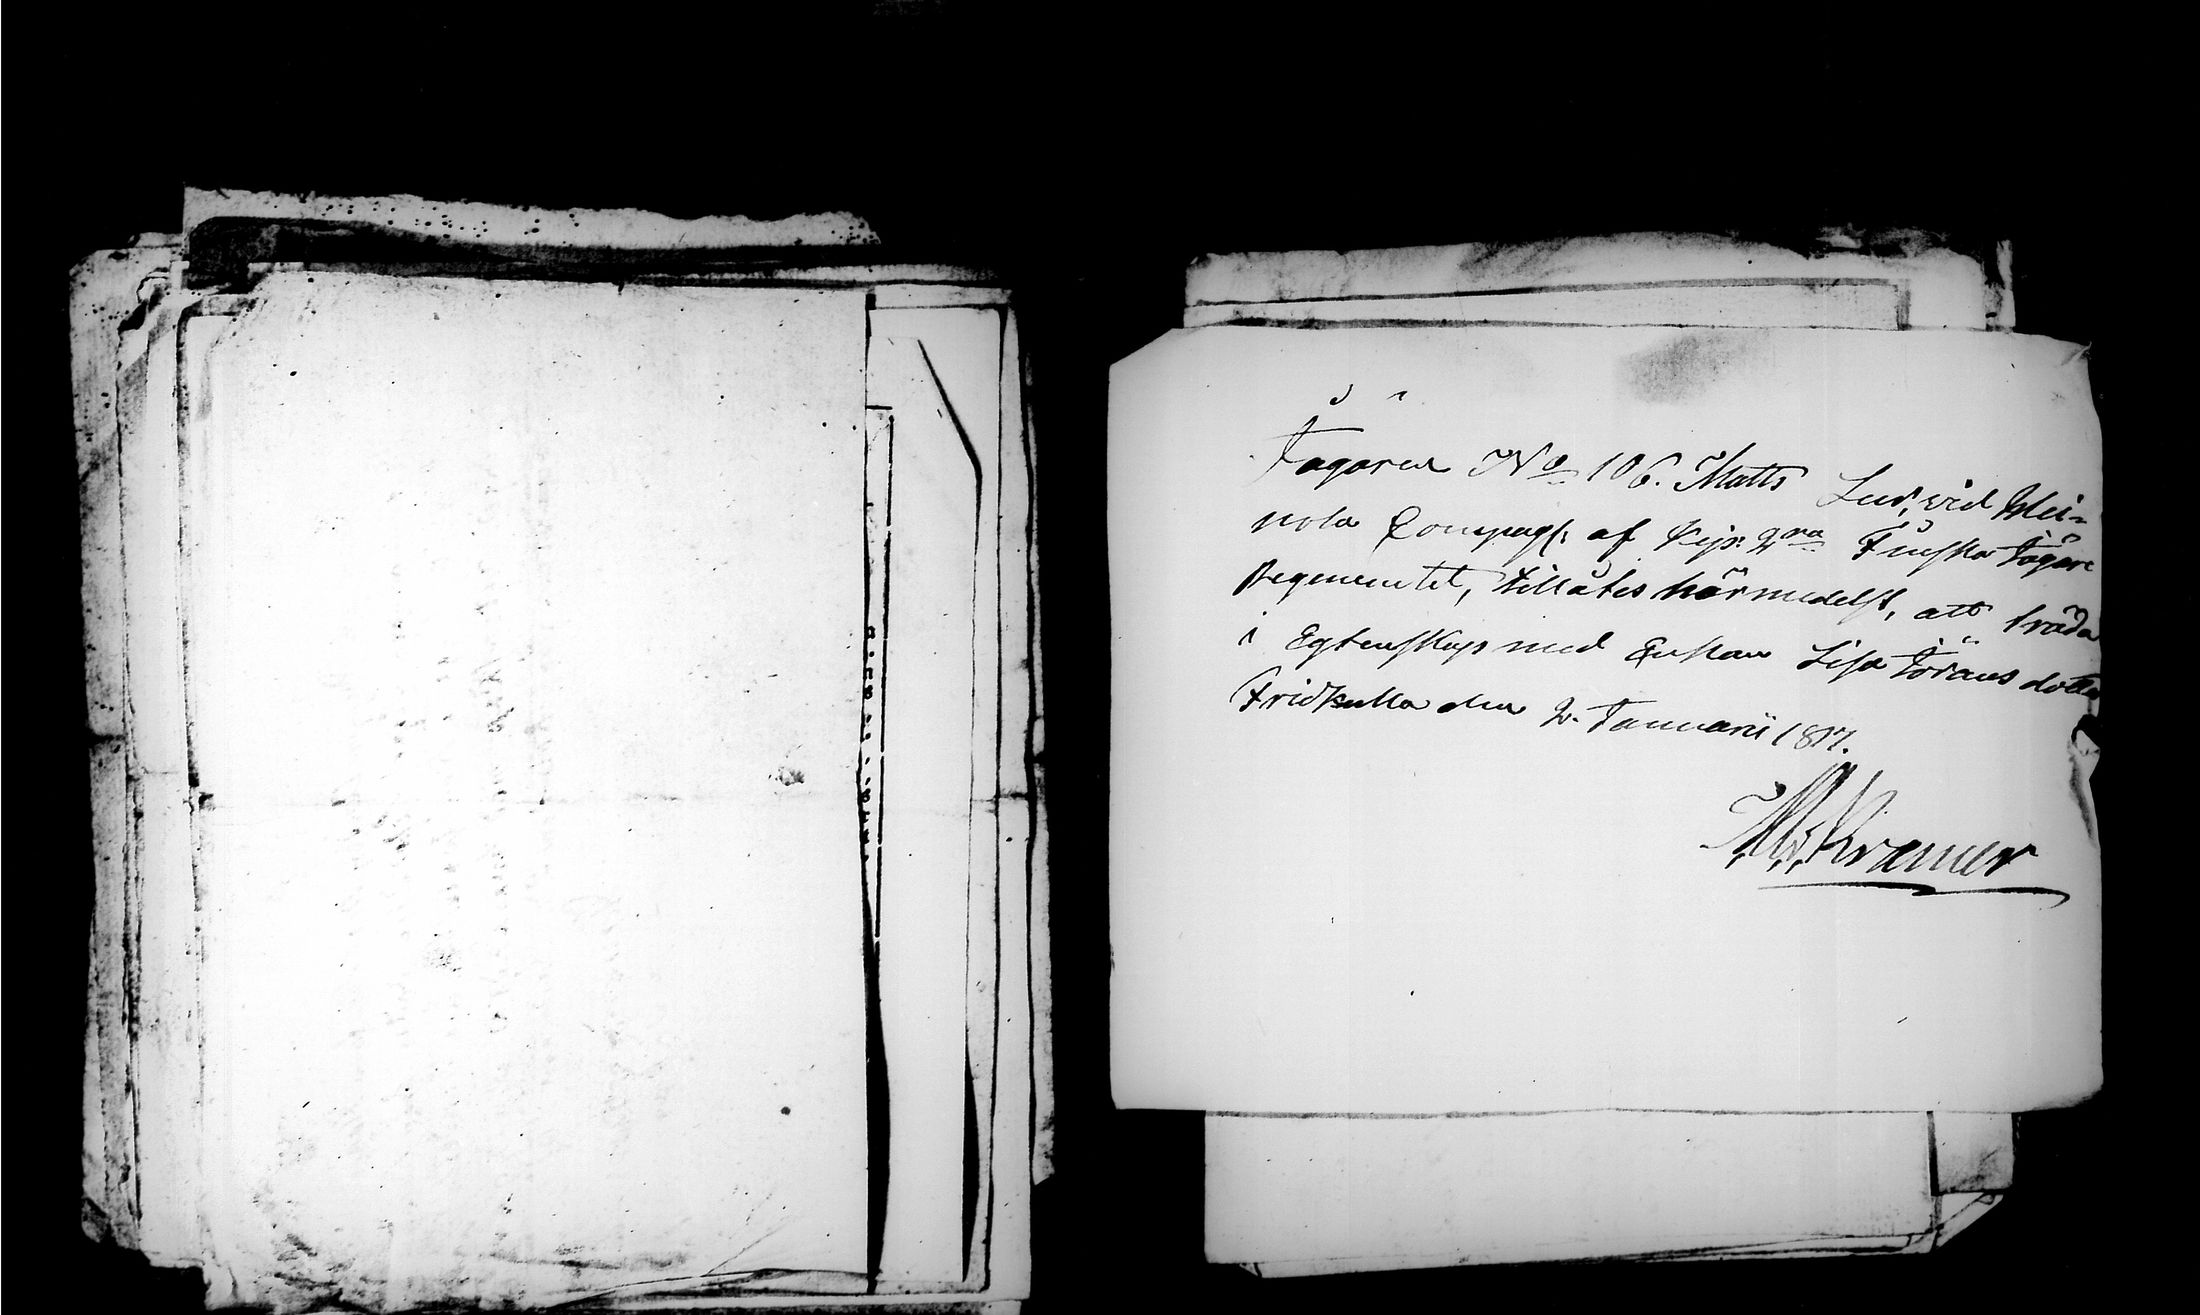 Jägaren No 106. Matts Lud, vid Hei-
nola Compagt: af Kejs: 2dra Finska Jägare
Regementet, tillåtes härmedelst, att träda
i Egtenskap med Enkan Lisa Jörans dotter
Fridkulla den 2. Januarii 1817.
Kræmer